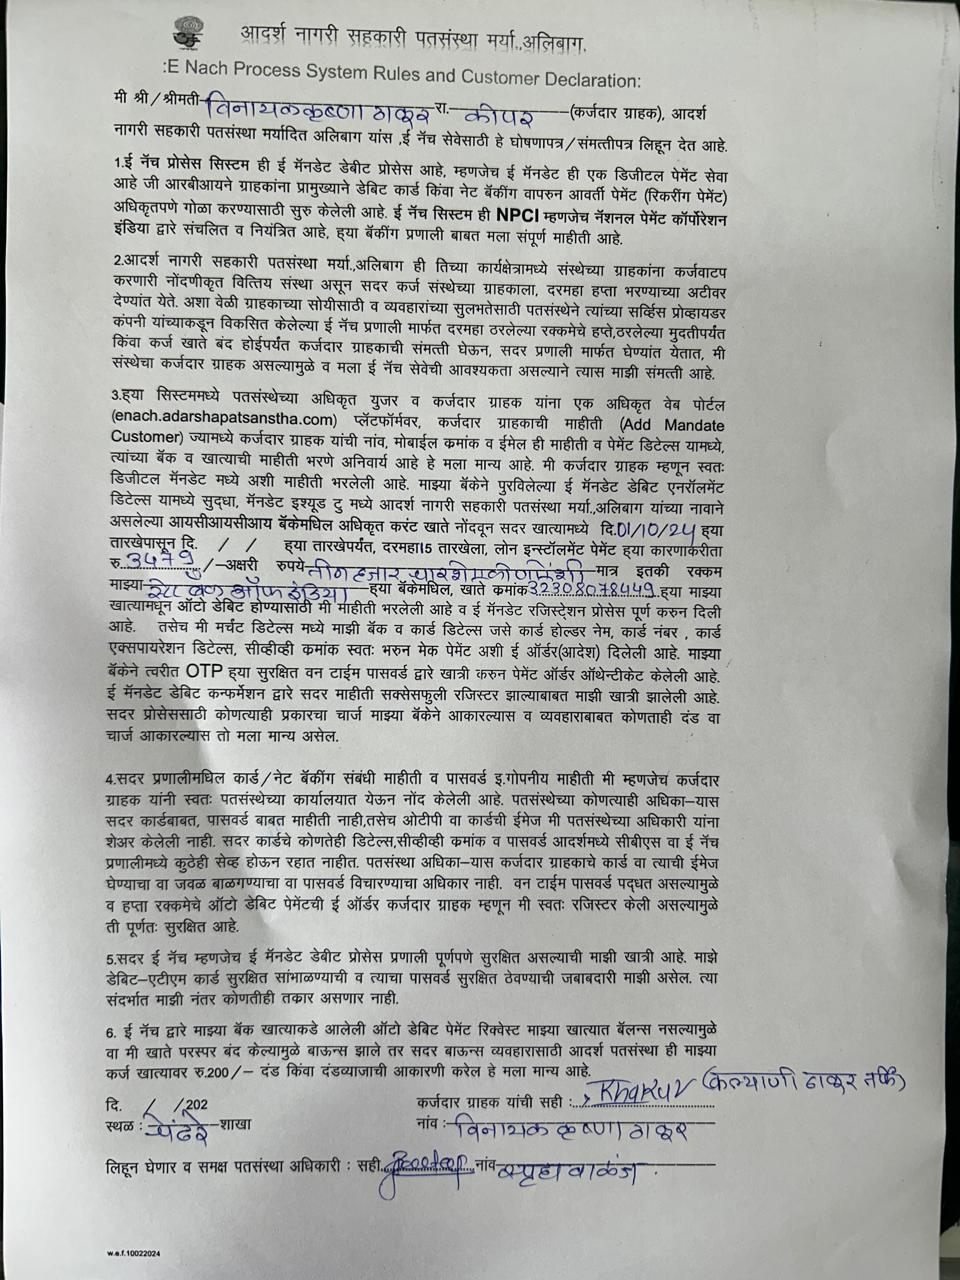 आदर्श नागरी सहकारी पतसंस्था मर्या.,अलिबाग.
:E Nach Process System Rules and Customer Declaration:
मी श्री/श्रीमती विनायक कृष्णा ठाकूर रा. कोपर (कर्जदार ग्राहक), आदर्श
नागरी सहकारी पतसंस्था मर्यादित अलिबाग यांस ,ई नॅच सेवेसाठी हे घोषणापत्र/संमत्तीपत्र लिहून देत आहे.
1.ई नॅच प्रोसेस सिस्टम ही ई मॅनडेट डेबीट प्रोसेस आहे, म्हणजेच ई मॅनडेट ही एक डिजीटल पेमेंट सेवा
आहे जी आरबीआयने ग्राहकांना प्रामुख्याने डेबिट कार्ड किंवा नेट बॅकींग वापरुन आवर्ती पेमेंट (रिकरींग पेमेंट)
अधिकृतपणे गोळा करण्यासाठी सुरु केलेली आहे. ई नॅच सिस्टम ही NPCI म्हणजेच नॅशनल पेमेंट कॉर्पोरेशन
इंडिया द्वारे संचलित व नियंत्रित आहे, ह्या बॅकींग प्रणाली बाबत मला संपूर्ण माहीती आहे.
2.आदर्श नागरी सहकारी पतसंस्था मर्या.,अलिबाग ही तिच्या कार्यक्षेत्रामध्ये संस्थेच्या ग्राहकांना कर्जवाटप
करणारी नोंदणीकृत वित्तिय संस्था असून सदर कर्ज संस्थेच्या ग्राहकाला, दरमहा हप्ता भरण्याच्या अटीवर
देण्यांत येते. अशा वेळी ग्राहकाच्या सोयीसाठी व व्यवहारांच्या सुलभतेसाठी पतसंस्थेने त्यांच्या सर्व्हिस प्रोव्हायडर
कंपनी यांच्याकडून विकसित केलेल्या ई नॅच प्रणाली मार्फत दरमहा ठरलेल्या रक्कमेचे हप्ते,ठरलेल्या मुदतीपर्यंत
किंवा कर्ज खाते बंद होईपर्यंत कर्जदार ग्राहकाची संमत्ती घेऊन, सदर प्रणाली मार्फत घेण्यांत येतात, मी
संस्थेचा कर्जदार ग्राहक असल्यामुळे व मला ई नॅच सेवेची आवश्यकता असल्याने त्यास माझी संमत्ती आहे.
3.ह्या सिस्टममध्ये पतसंस्थेच्या अधिकृत युजर व कर्जदार ग्राहक यांना एक अधिकृत वेब पोर्टल
(enach.adarshapatsanstha.com) प्लॅटफॉर्मवर, कर्जदार ग्राहकाची माहीती (Add Mandate
Customer) ज्यामध्ये कर्जदार ग्राहक यांची नांव, मोबाईल क्रमांक व ईमेल ही माहीती व पेमेंट डिटेल्स यामध्ये,
त्यांच्या बॅक व खात्याची माहीती भरणे अनिवार्य आहे हे मला मान्य आहे. मी कर्जदार ग्राहक म्हणून स्वतः
डिजीटल मॅनडेट मध्ये अशी माहीती भरलेली आहे. माझ्या बॅकेने पुरविलेल्या ई मॅनडेट डेबिट एनरॉलमेंट
डिटेल्स यामध्ये सुद्धा, मॅनडेट इश्यूड टु मध्ये आदर्श नागरी सहकारी पतसंस्था मर्या.,अलिबाग यांच्या नावाने
असलेल्या आयसीआयसीआय बॅकेमधिल अधिकृत करंट खाते नोंदवून सदर खात्यामध्ये दि.01/10/24 ह्या
तारखेपासून दि. / / ह्या तारखेपर्यंत, दरमहा15 तारखेला, लोन इन्स्टॉलमेंट पेमेंट ह्या कारणाकरीता
रु.3479/-अक्षरी रुपये तीन हजार चारशे एकोणऐंशी मात्र इतकी रक्कम
माझ्या स्टेट बँक ऑफ इंडिया ह्या बॅकेमधिल, खाते क्रमांक 32308078449 ह्या माझ्या
खात्यामधून ऑटो डेबिट होण्यासाठी मी माहीती भरलेली आहे व ई मॅनडेट रजिस्ट्रेशन प्रोसेस पूर्ण करुन दिली
आहे. तसेच मी मर्चंट डिटेल्स मध्ये माझी बॅक व कार्ड डिटेल्स जसे कार्ड होल्डर नेम, कार्ड नंबर , कार्ड
एक्सपायरेशन डिटेल्स, सीव्हीव्ही क्रमांक स्वतः भरुन मेक पेमेंट अशी ई ऑर्डर(आदेश) दिलेली आहे. माझ्या
बॅकेने त्वरीत OTP ह्या सुरक्षित वन टाईम पासवर्ड द्वारे खात्री करुन पेमेंट ऑर्डर ऑथेन्टीकेट केलेली आहे.
ई मॅनडेट डेबिट कन्फर्मेशन द्वारे सदर माहीती सक्सेसफुली रजिस्टर झाल्याबाबत माझी खात्री झालेली आहे.
सदर प्रोसेससाठी कोणत्याही प्रकारचा चार्ज माझ्या बॅकेने आकारल्यास व व्यवहाराबाबत कोणताही दंड वा
चार्ज आकारल्यास तो मला मान्य असेल.
4.सदर प्रणालीमधिल कार्ड/नेट बॅकींग संबंधी माहीती व पासवर्ड इ.गोपनीय माहीती मी म्हणजेच कर्जदार
ग्राहक यांनी स्वतः पतसंस्थेच्या कार्यालयात येऊन नोंद केलेली आहे. पतसंस्थेच्या कोणत्याही अधिका-यास
सदर कार्डबाबत, पासवर्ड बाबत माहीती नाही,तसेच ओटीपी वा कार्डची ईमेज मी पतसंस्थेच्या अधिकारी यांना
शेअर केलेली नाही. सदर कार्डचे कोणतेही डिटेल्स,सीव्हीव्ही क्रमांक व पासवर्ड आदर्शमध्ये सीबीएस वा ई नॅच
प्रणालीमध्ये कुठेही सेव्ह होऊन रहात नाहीत. पतसंस्था अधिका-यास कर्जदार ग्राहकाचे कार्ड वा त्याची ईमेज
घेण्याचा वा जवळ बाळगण्याचा वा पासवर्ड विचारण्याचा अधिकार नाही. वन टाईम पासवर्ड पद्धत असल्यामुळे
व हप्ता रक्कमेचे ऑटो डेबिट पेमेंटची ई ऑर्डर कर्जदार ग्राहक म्हणून मी स्वतः रजिस्टर केली असल्यामुळे
ती पूर्णतः सुरक्षित आहे.
5.सदर ई नॅच म्हणजेच ई मॅनडेट डेबीट प्रोसेस प्रणाली पूर्णपणे सुरक्षित असल्याची माझी खात्री आहे. माझे
डेबिट-एटीएम कार्ड सुरक्षित सांभाळण्याची व त्याचा पासवर्ड सुरक्षित ठेवण्याची जबाबदारी माझी असेल. त्या
संदर्भात माझी नंतर कोणतीही तक्रार असणार नाही.
6. ई नॅच द्वारे माझ्या बॅक खात्याकडे आलेली ऑटो डेबिट पेमेंट रिक्वेस्ट माझ्या खात्यात बॅलन्स नसल्यामुळे
वा मी खाते परस्पर बंद केल्यामुळे बाऊन्स झाले तर सदर बाऊन्स व्यवहारासाठी आदर्श पतसंस्था ही माझ्या
कर्ज खात्यावर रु.200/- दंड किंवा दंडव्याजाची आकारणी करेल हे मला मान्य आहे.
दि. / /202 कर्जदार ग्राहक यांची सही : (कल्याणी ठाकूर तर्फे)
स्थळ : पेंढरे शाखा नांव : विनायक कृष्णा ठाकूर
लिहून घेणार व समक्ष पतसंस्था अधिकारी : सही नांव
w.e.f.10022024